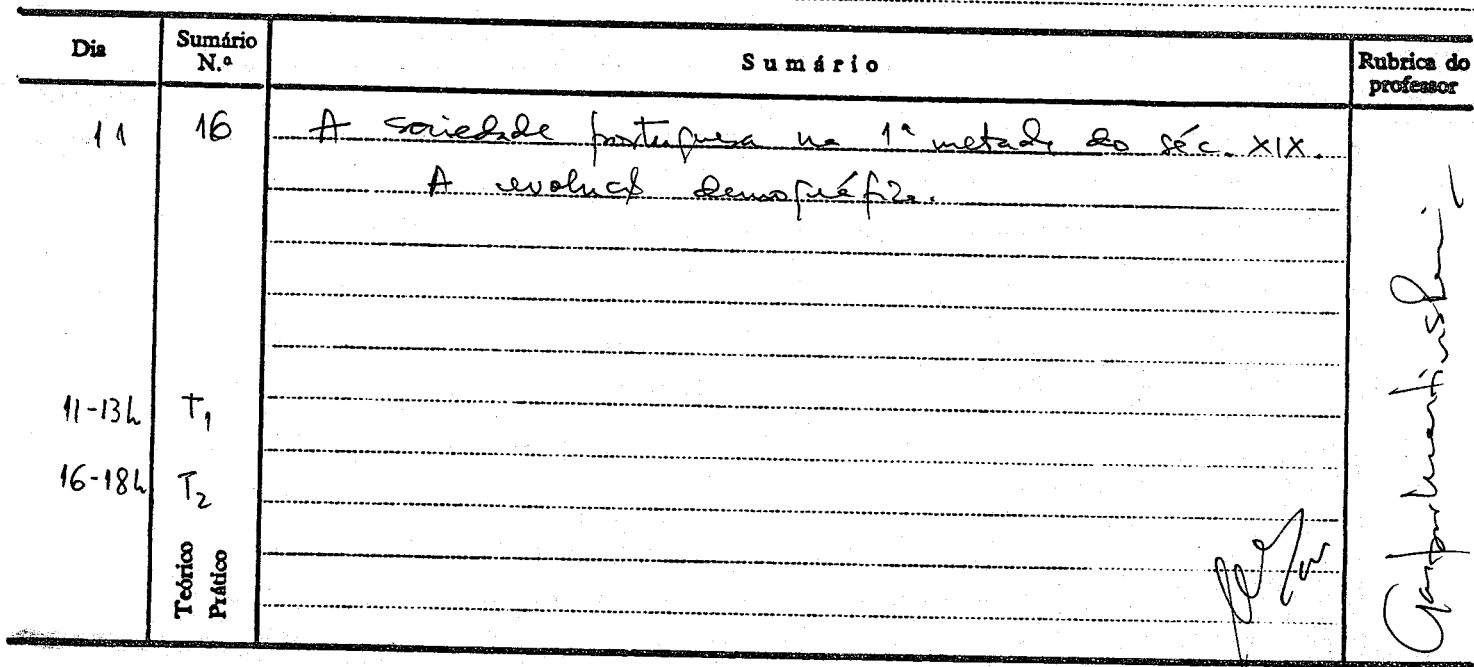 Dia
Sumário N.º
Sumário
Rubrica do professor
11 16 A sociedade portuguesa na 1ª metade do séc. XIX.
A evolução demográfica.
11-13h T1
16-18h T2
Teórico
Prático
Gaspar Martins Pereira